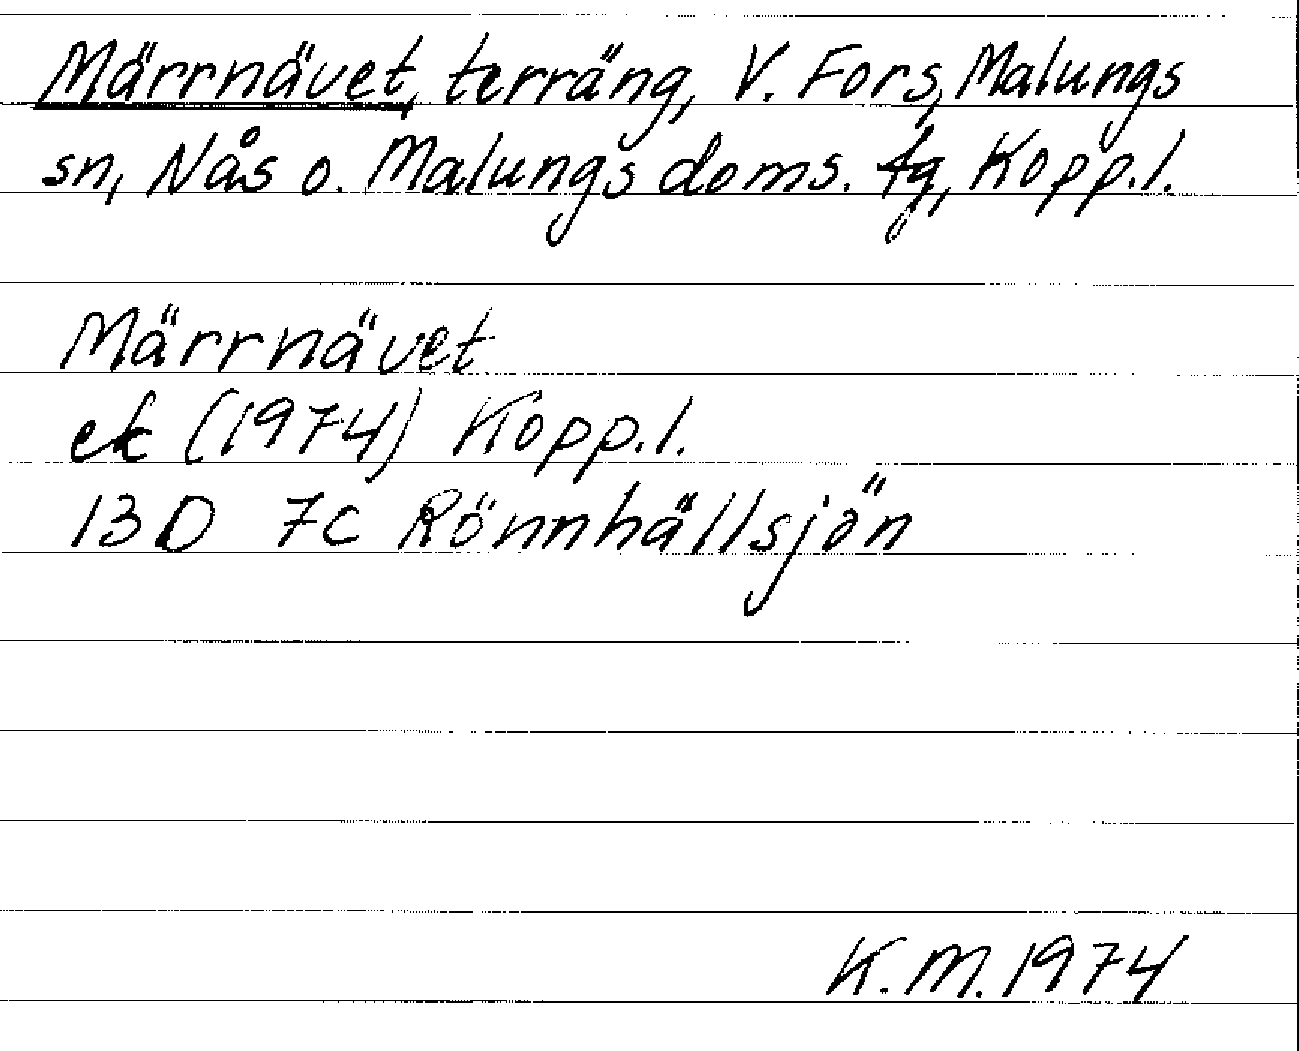 Märrnävet, terräng, V. Fors, Malungs
sn, Nås o. Malungs doms. tg, Kopp.l.
Märrnävet
ek (1974) Kopp.l.
13D 7c Rönnhällsjön
K.M. 1974